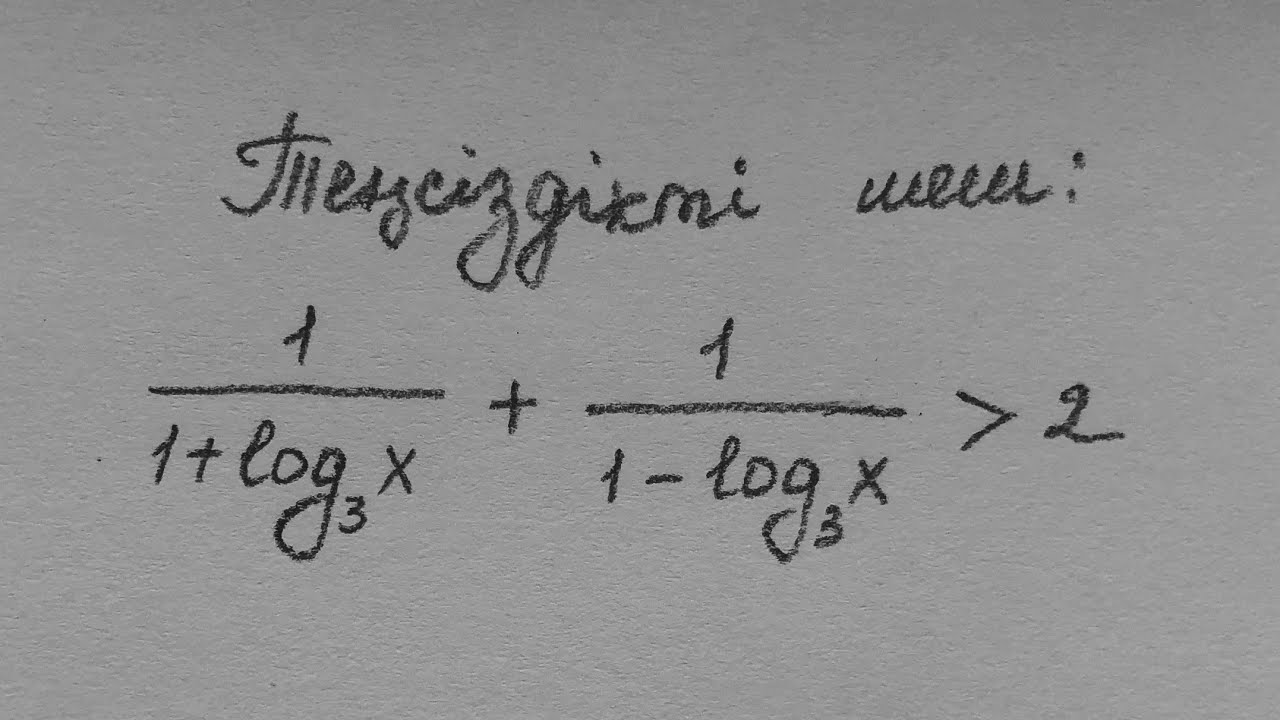 Теңсіздікті шеш:
1/(1+log₃x) + 1/(1-log₃x) > 2